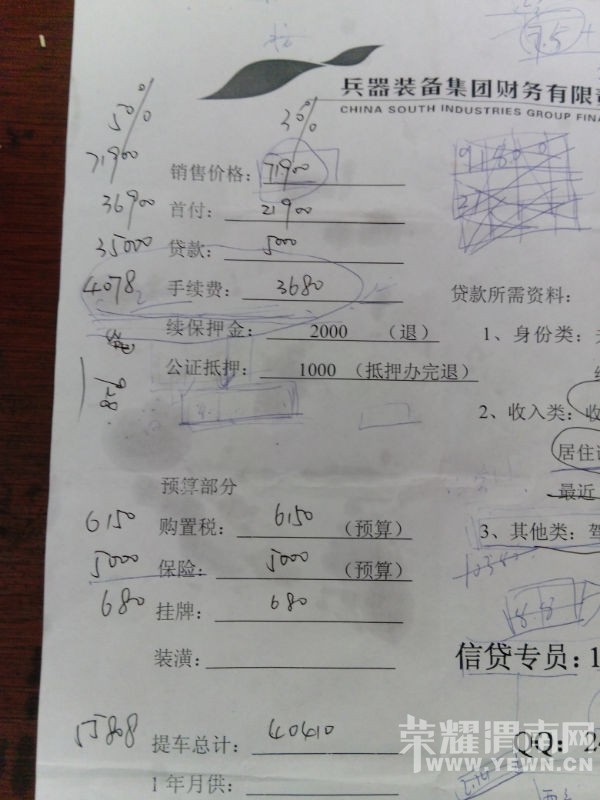 兵器装备集团财务有限责
CHINA SOUTH INDUSTRIES GROUP FINA
50% 30%
71900 销售价格: 71900
36900 首付: 21900
35000 贷款: 5000
4078 手续费: 3680
贷款所需资料:
续保押金: 2000 （退）
1、身份类:
公证抵押: 1000 （抵押办完退）
2、收入类: 收
居住
最近
预算部分
6150 购置税: 6150 （预算）
3、其他类: 驾
5000 保险: 5000 （预算）
680 挂牌: 680
装潢:
信贷专员: 1
55808 提车总计: 40410
QQ: 24
1 年月供:
荣耀渭南网
WWW.YEWN.CN